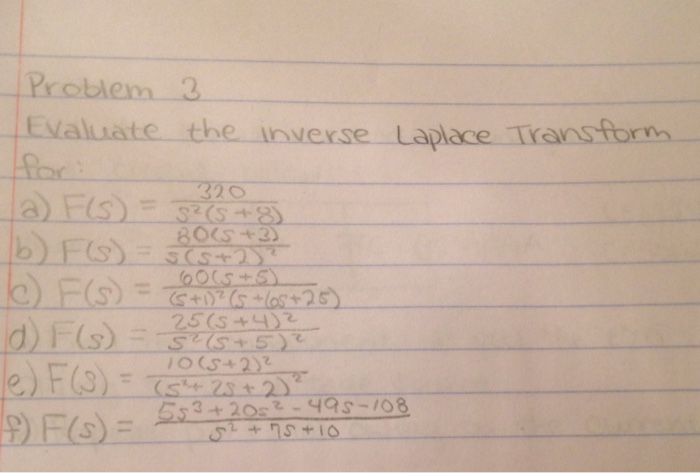 Problem 3
Evaluate the inverse Laplace Transform
for:
a) F(s) = 320 / s²(s+8)
b) F(s) = 80(s+3) / s(s+2)²
c) F(s) = 60(s+5) / (s+1)²(s+6s+25)
d) F(s) = 25(s+4)² / s²(s+5)²
e) F(s) = 10(s+2)² / (s²+2s+2)²
f) F(s) = 5s³+20s²-49s-108 / s²+7s+10